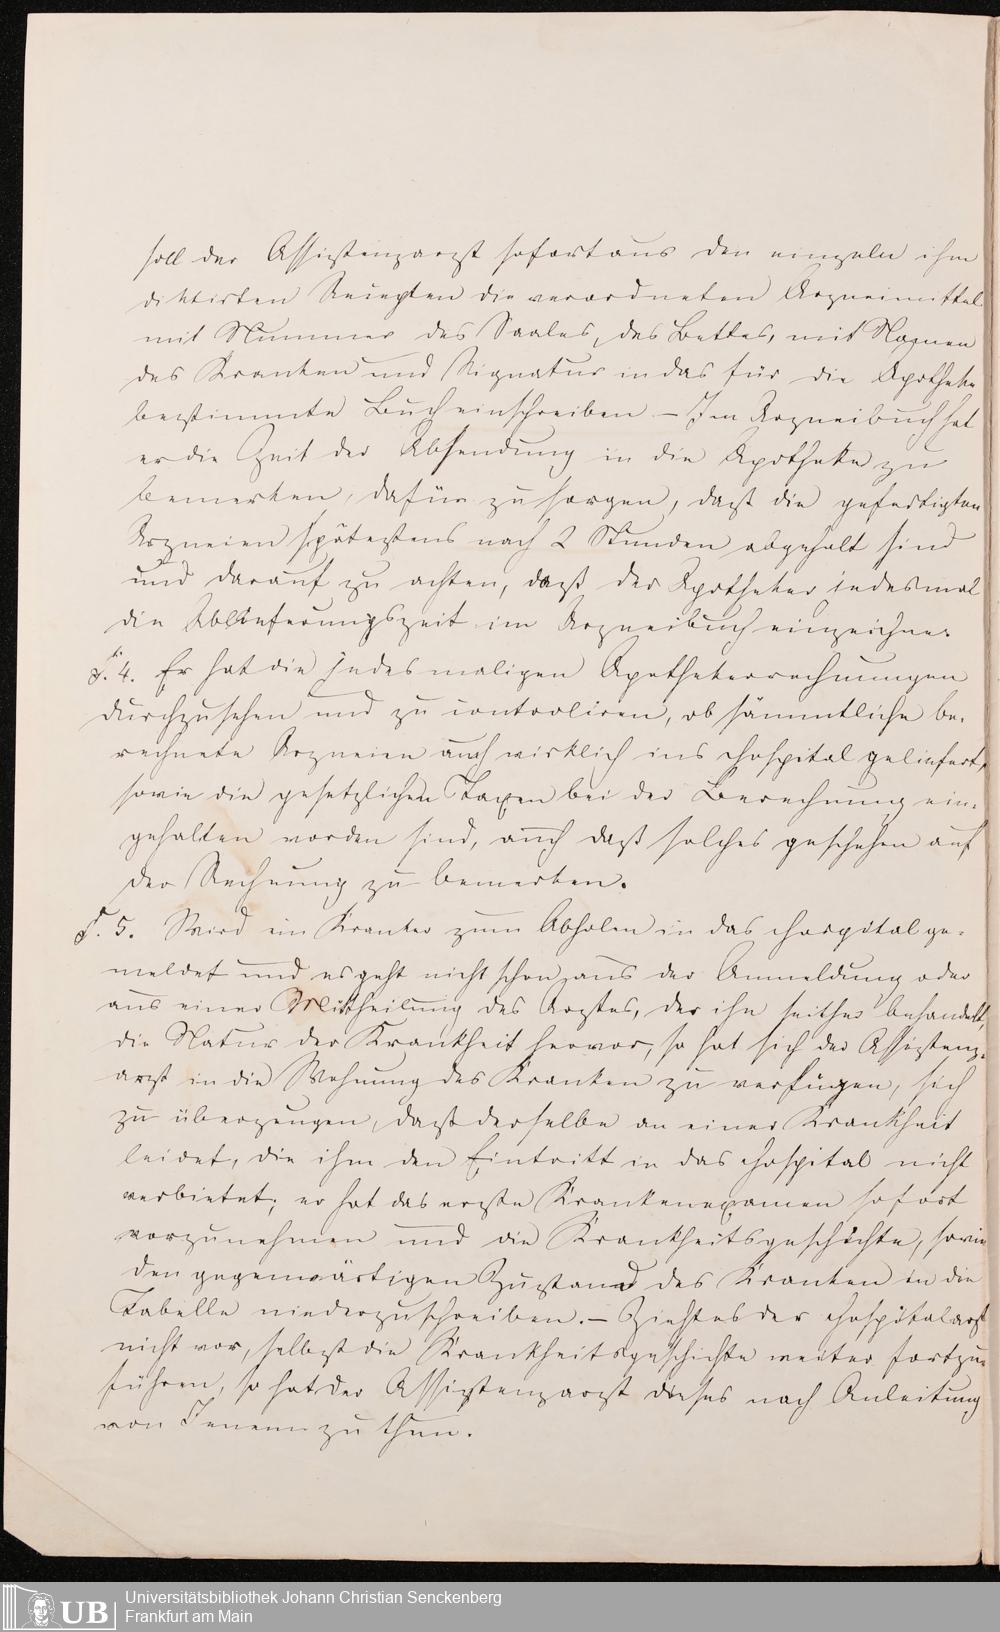 soll der Assistenzarzt sofort aus den einzeln ihm
diktirten Recepten die verordneten Arzneimittel
mit Nummer des Saales, des Bettes, mit Namen
des Kranken und Signatur in das für die Apotheke
bestimmte Buch einschreiben – Im Arzneibuch hat
er die Zeit der Absendung in die Apotheke zu
bemerken, dafür zu sorgen, daß die gefertigten
Arzneien spätestens nach 2 Stunden abgeholt sind
und darauf zu achten, daß der Apotheker jedesmal
die Ablieferungszeit im Arzneibuch einzeichne.
§. 4. Er hat die jedesmaligen Apothekerrechnungen
durchzusehen und zu controliren, ob sämmtliche be-
rechnete Arzneien auch wirklich ins Hospital geliefert,
sowie die gesetzlichen Taxen bei der Berechnung ein-
gehalten worden sind, auch daß solches geschehen auf
der Rechnung zu bemerken.
§. 5. Wird ein Kranker zum Abholen in das Hospital ge-
meldet und es geht nicht schon aus der Anmeldung oder
aus einer Mittheilung des Arztes, der ihn seither behandelt,
die Natur der Krankheit hervor, so hat sich der Assistenz-
arzt in die Wohnung des Kranken zu verfügen, sich
zu überzeugen, daß derselbe an einer Krankheit
leidet, die ihm den Eintritt in das Hospital nicht
verbietet; er hat das erste Krankenexamen sofort
vorzunehmen und die Krankheitsgeschichte, sowie
den gegenwärtigen Zustand des Kranken in die
Tabelle niederzuschreiben. – Zieht es der Hospitalarzt
nicht vor, selbst die Krankheitsgeschichte weiter fortzu-
führen, so hat der Assistenzarzt dieses nach Anleitung
von Jenem zu thun.
Universitätsbibliothek Johann Christian Senckenberg
Frankfurt am Main
UB